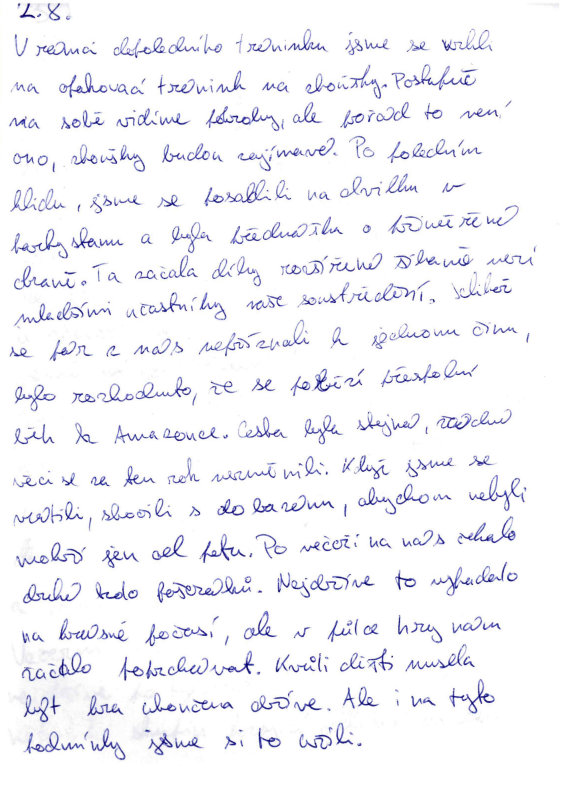 2.8.
V rámci dopoledního tréninku jsme se vrhli
na opakovací trénink na zkoušky. Postupně
na sobě vidíme pokroky, ale pořád to není
ono, zkoušky budou zajímavé. Po poledním
klidu, jsme se posadili na chvilku v
partystanu a byla přednáška o
obraně. Ta začala díky rozšířené šikaně mezi
mladšími účastníky naše soustředění. Jelikož
se pár z nás nepřiznali k jednomu činu,
bylo rozhodnuto, že se poběží přespolní
běh k Amazonce. Cesta byla stejná, žádné
věci se za ten rok nezměnili. Když jsme se
vrátili, skočili s do bazénu, abychom nebyli
mokří jen od potu. Po večeři na nás čekalo
druhé kolo pašeráků. Nejdříve to vypadalo
na krásné počasí, ale v půlce hry nám
začalo poprchávat. Kvůli dešti musela
být hra ukončena dříve. Ale i na tyto
podmínky jsme si to užili.